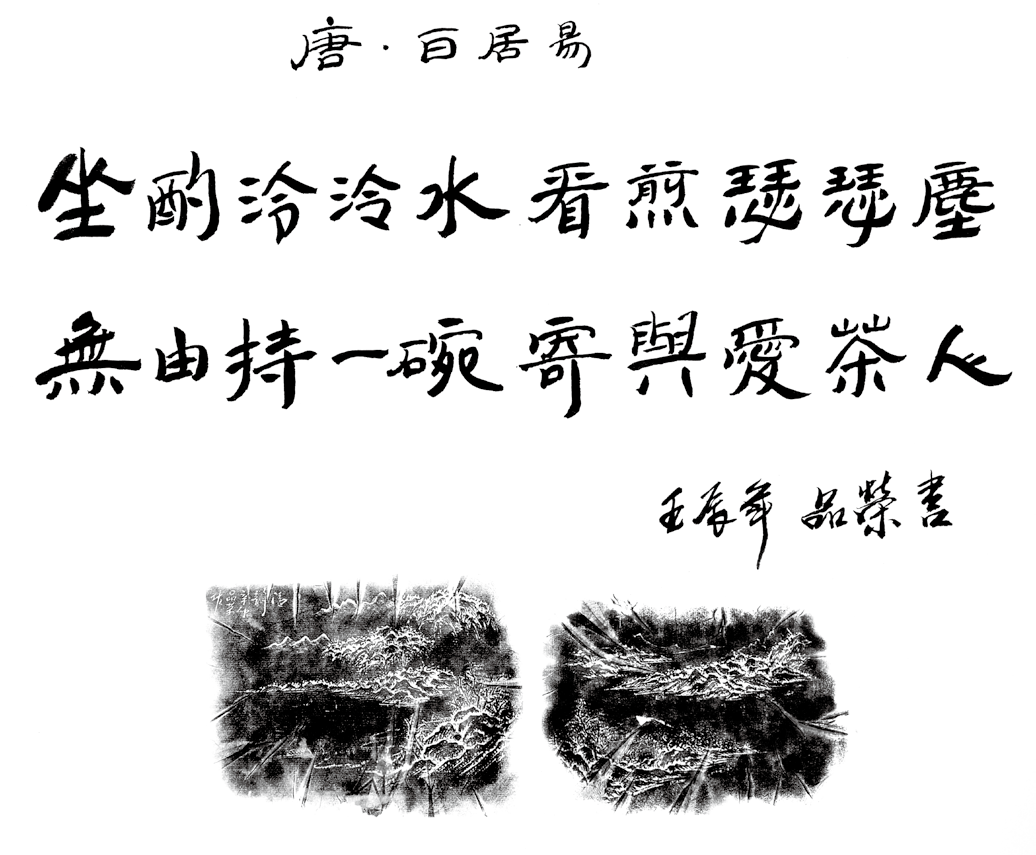 唐·白居易
坐酌泠泠水 看煎瑟瑟塵
無由持一碗 寄與愛茶人
壬辰年 品榮書